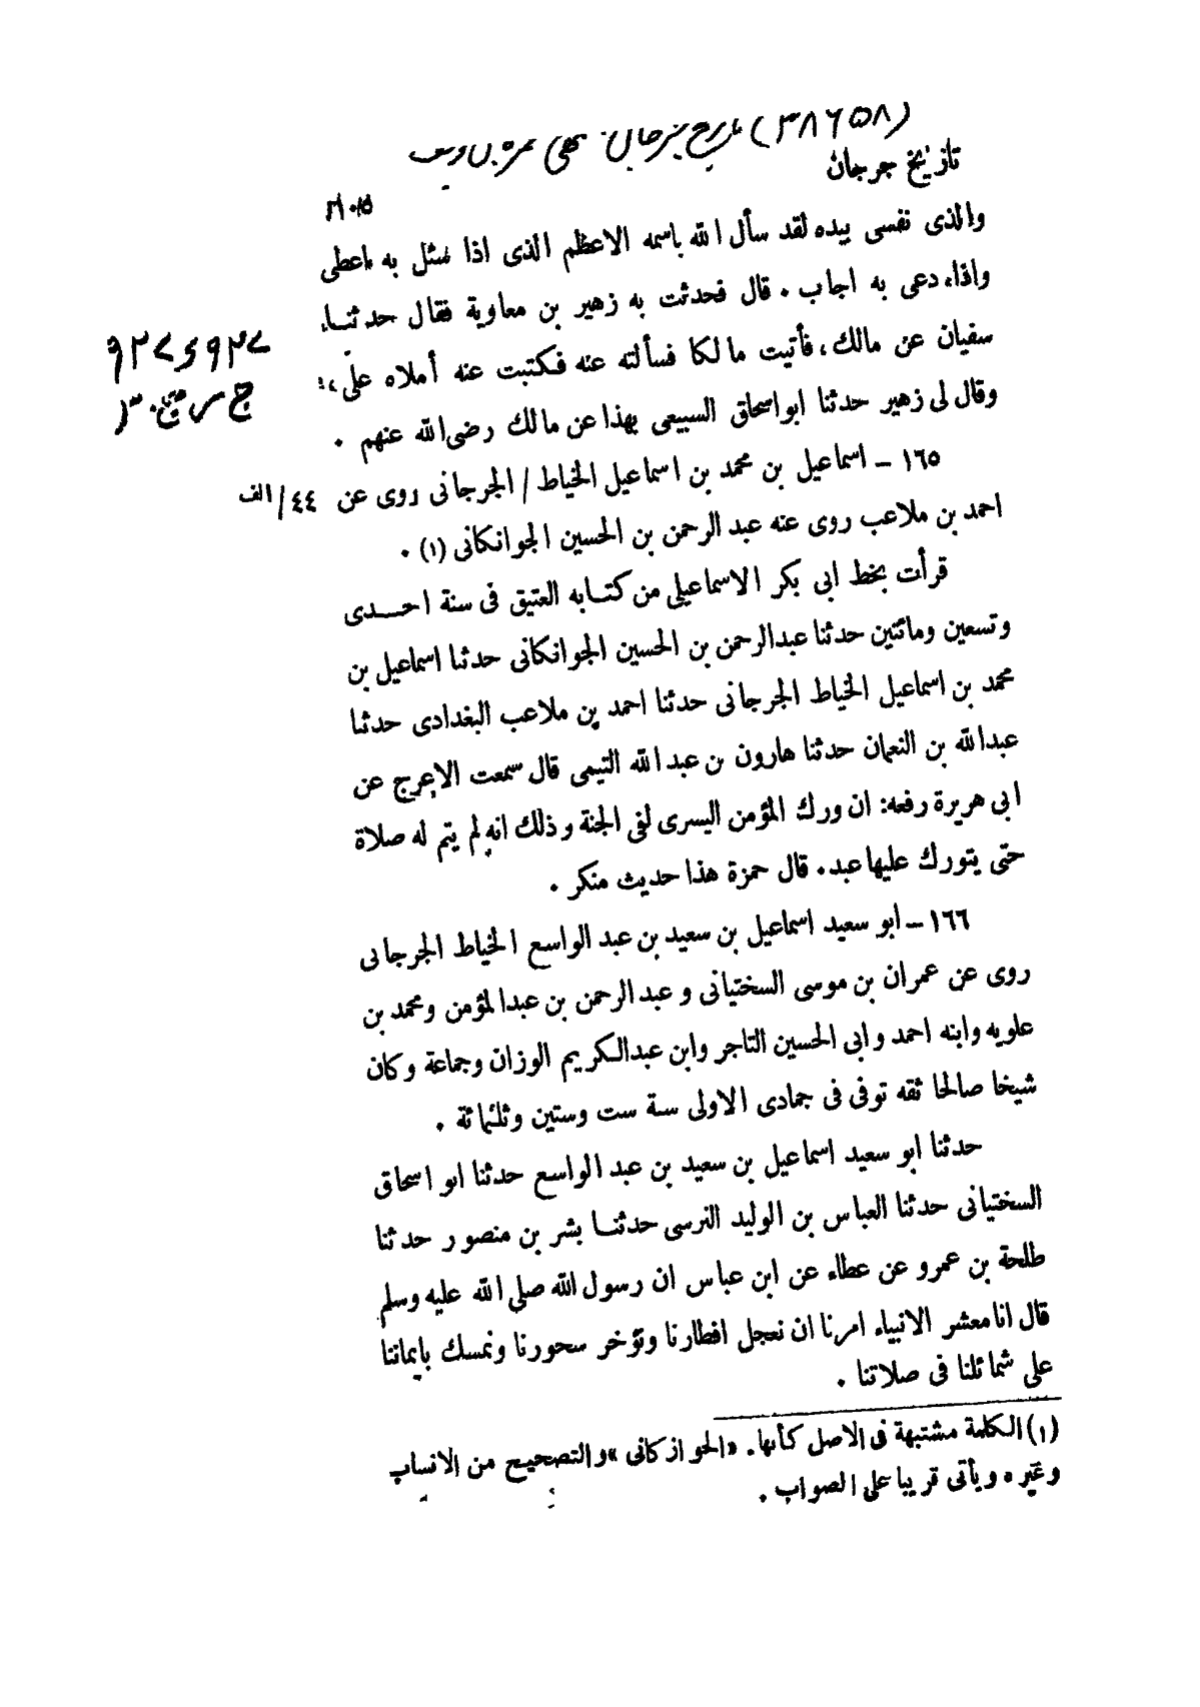 (٣٨٦٥٨) تاريخ جرجان
تاريخ جرجان
١٠٥
والذى نفسى بيده لقد سأل الله باسمه الاعظم الذى اذا سئل به اعطى
واذا دعى به اجاب . قال فحدثت به زهير بن معاوية فقال حدثنا
سفيان عن مالك، فأتيت مالكا فسألته عنه فكتبت عنه أملاه علىّ،
وقال لى زهير حدثنا ابواسحاق السبيعى بهذا عن مالك رضى الله عنهم .
١٦٥ – اسماعيل بن محمد بن اسماعيل الخياط / الجرجانى روى عن ٤٤/الف
احمد بن ملاعب روى عنه عبد الرحمن بن الحسين الجوانكانى (١) .
قرأت بخط ابى بكر الاسماعيلى من كتابه العتيق فى سنة احدى
وتسعين ومائتين حدثنا عبدالرحمن بن الحسين الجوانكانى حدثنا اسماعيل بن
محمد بن اسماعيل الخياط الجرجانى حدثنا احمد بن ملاعب البغدادى حدثنا
عبدالله بن النعمان حدثنا هارون بن عبد الله التيمى قال سمعت الاعرج عن
ابى هريرة رفعه: ان ورك المؤمن اليسرى لفى الجنة وذلك انه لم يتم له صلاة
حتى يتورك عليها عبد. قال حمزة هذا حديث منكر .
١٦٦ – ابو سعيد اسماعيل بن سعيد بن عبد الواسع الخياط الجرجانى
روى عن عمران بن موسى السختيانى و عبد الرحمن بن عبدالمؤمن ومحمد بن
علويه وابنه احمد وابى الحسين التاجر وابن عبدالكريم الوزان وجماعة وكان
شيخا صالحا ثقه توفى فى جمادى الاولى سة ست وستين وثلثمائة .
حدثنا ابو سعيد اسماعيل بن سعيد بن عبد الواسع حدثنا ابو اسحاق
السختيانى حدثنا العباس بن الوليد النرسى حدثنا بشر بن منصور حدثنا
طلحة بن عمرو عن عطاء عن ابن عباس ان رسول الله صلى الله عليه وسلم
قال انا معشر الانبياء امرنا ان نعجل افطارنا ونؤخر سحورنا ونمسك بايماننا
على شمائلنا فى صلاتنا .
(١) الكلمة مشتبهة فى الاصل كأنها. «الحوازكانى» والتصحيح من الانساب
وغيره ويأتى قريبا على الصواب .